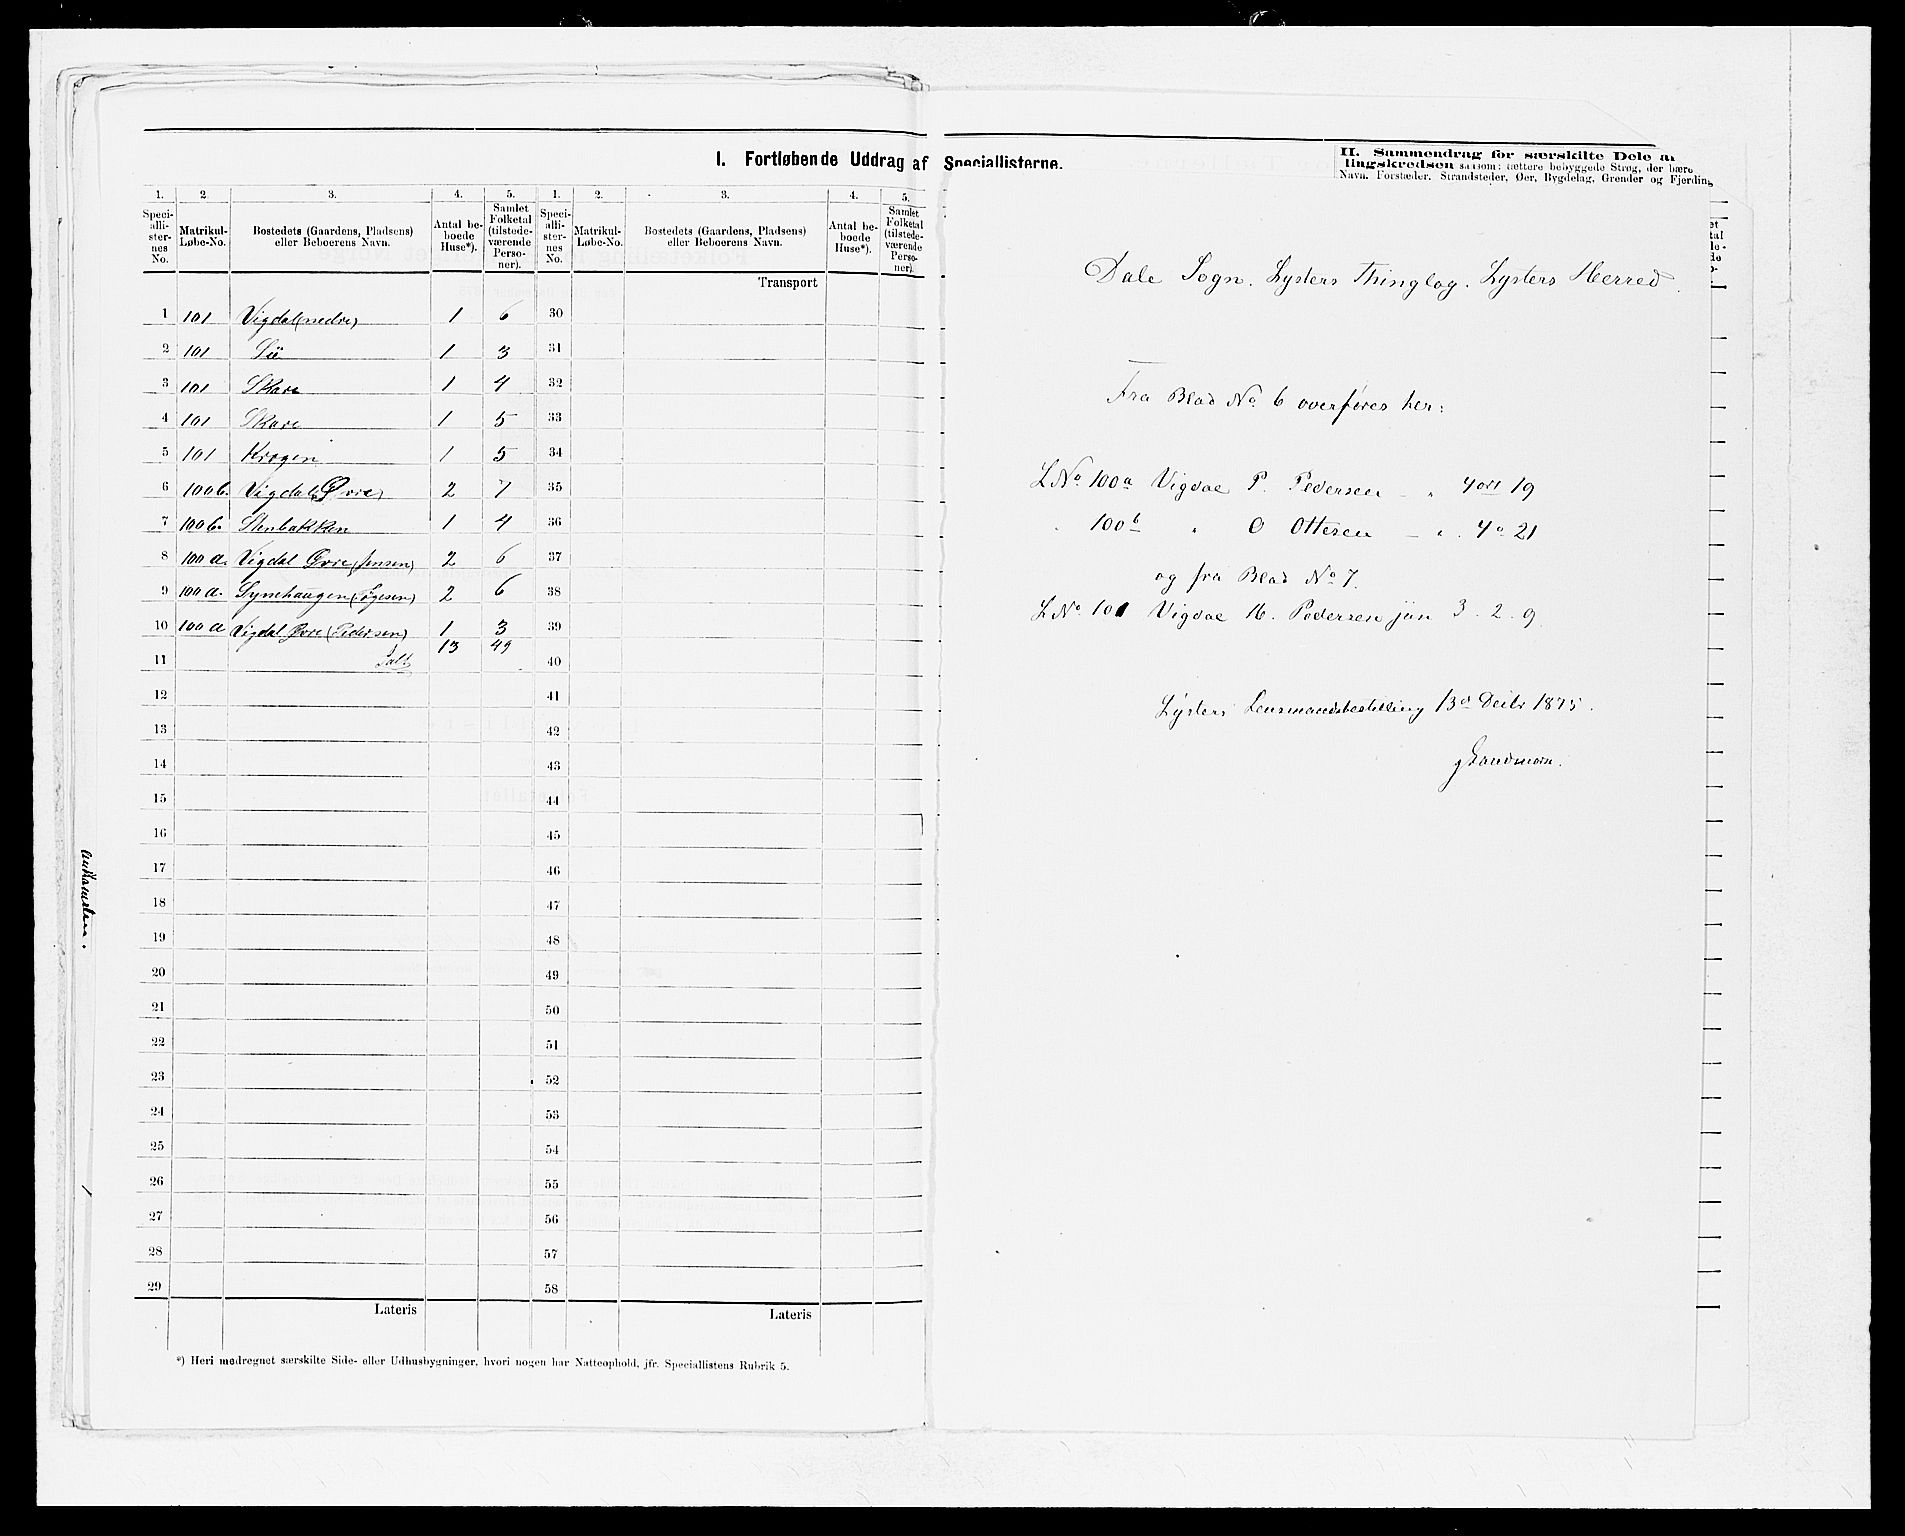 I. Fortløbende Uddrag af Speciallisterne.
II. Sammendrag for særskilte Dele af
lingskredsen saasom: tættere bebyggede Strøg, der bære
Navn, Forstæder, Strandsteder, Øer, Bygdelag, Grender og Fjerding
1. 2. 3. 4. 5. 1. 2. 3. 4. 5.
Speciallisternes No. Matrikul-Løbe-No. Bostedets (Gaardens, Pladsens) eller Beboerens Navn. Antal beboede Huse*). Samlet Folketal (tilstedeværende Personer). Speciallisternes No. Matrikul-Løbe-No. Bostedets (Gaardens, Pladsens) eller Beboerens Navn. Antal beboede Huse*). Samlet Folketal (tilstedeværende Personer).
Transport
1 101 Vigdal (nedre) 1 6 30
2 101 Lii 1 3 31
3 101 Skare 1 4 32
4 101 Skare 1 5 33
5 101 Krogen 1 5 34
6 100b. Vigdal (Øvre) 2 7 35
7 100b. Stenbakken 1 4 36
8 100a. Vigdal Øvre (Jensen) 2 6 37
9 100a. Synehaugen 2 6 38
10 100a Vigdal Øvre (Pedersen) 1 3 39
11 Talt 13 49 40
12 41
13 42
14 43
15 44
16 45
17 46
18 47
19 48
20 49
21 50
22 51
23 52
24 53
25 54
26 55
27 56
28 57
29 58
Lateris Lateris
*) Heri medregnet særskilte Side- eller Udhusbygninger, hvori nogen har Natteophold, jfr. Speciallistens Rubrik 5.
Dale Sogn. Lysters Thinglag. Lysters Herred.
Fra Blad No. 6 overføres her:
LNo. 100a Vigdal P. Pedersen - " 4 ort 19
" 100b " O Ottesen - " . 4 o 21
og fra Blad No 7.
LNo. 101 Vigdal H. Pedersen jun 3 - 2 - 9.
Lysters Lensmandsbestilling 13d Decbr 1875.